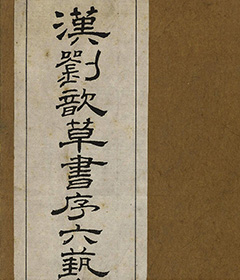 漢劉歆草書序六藝